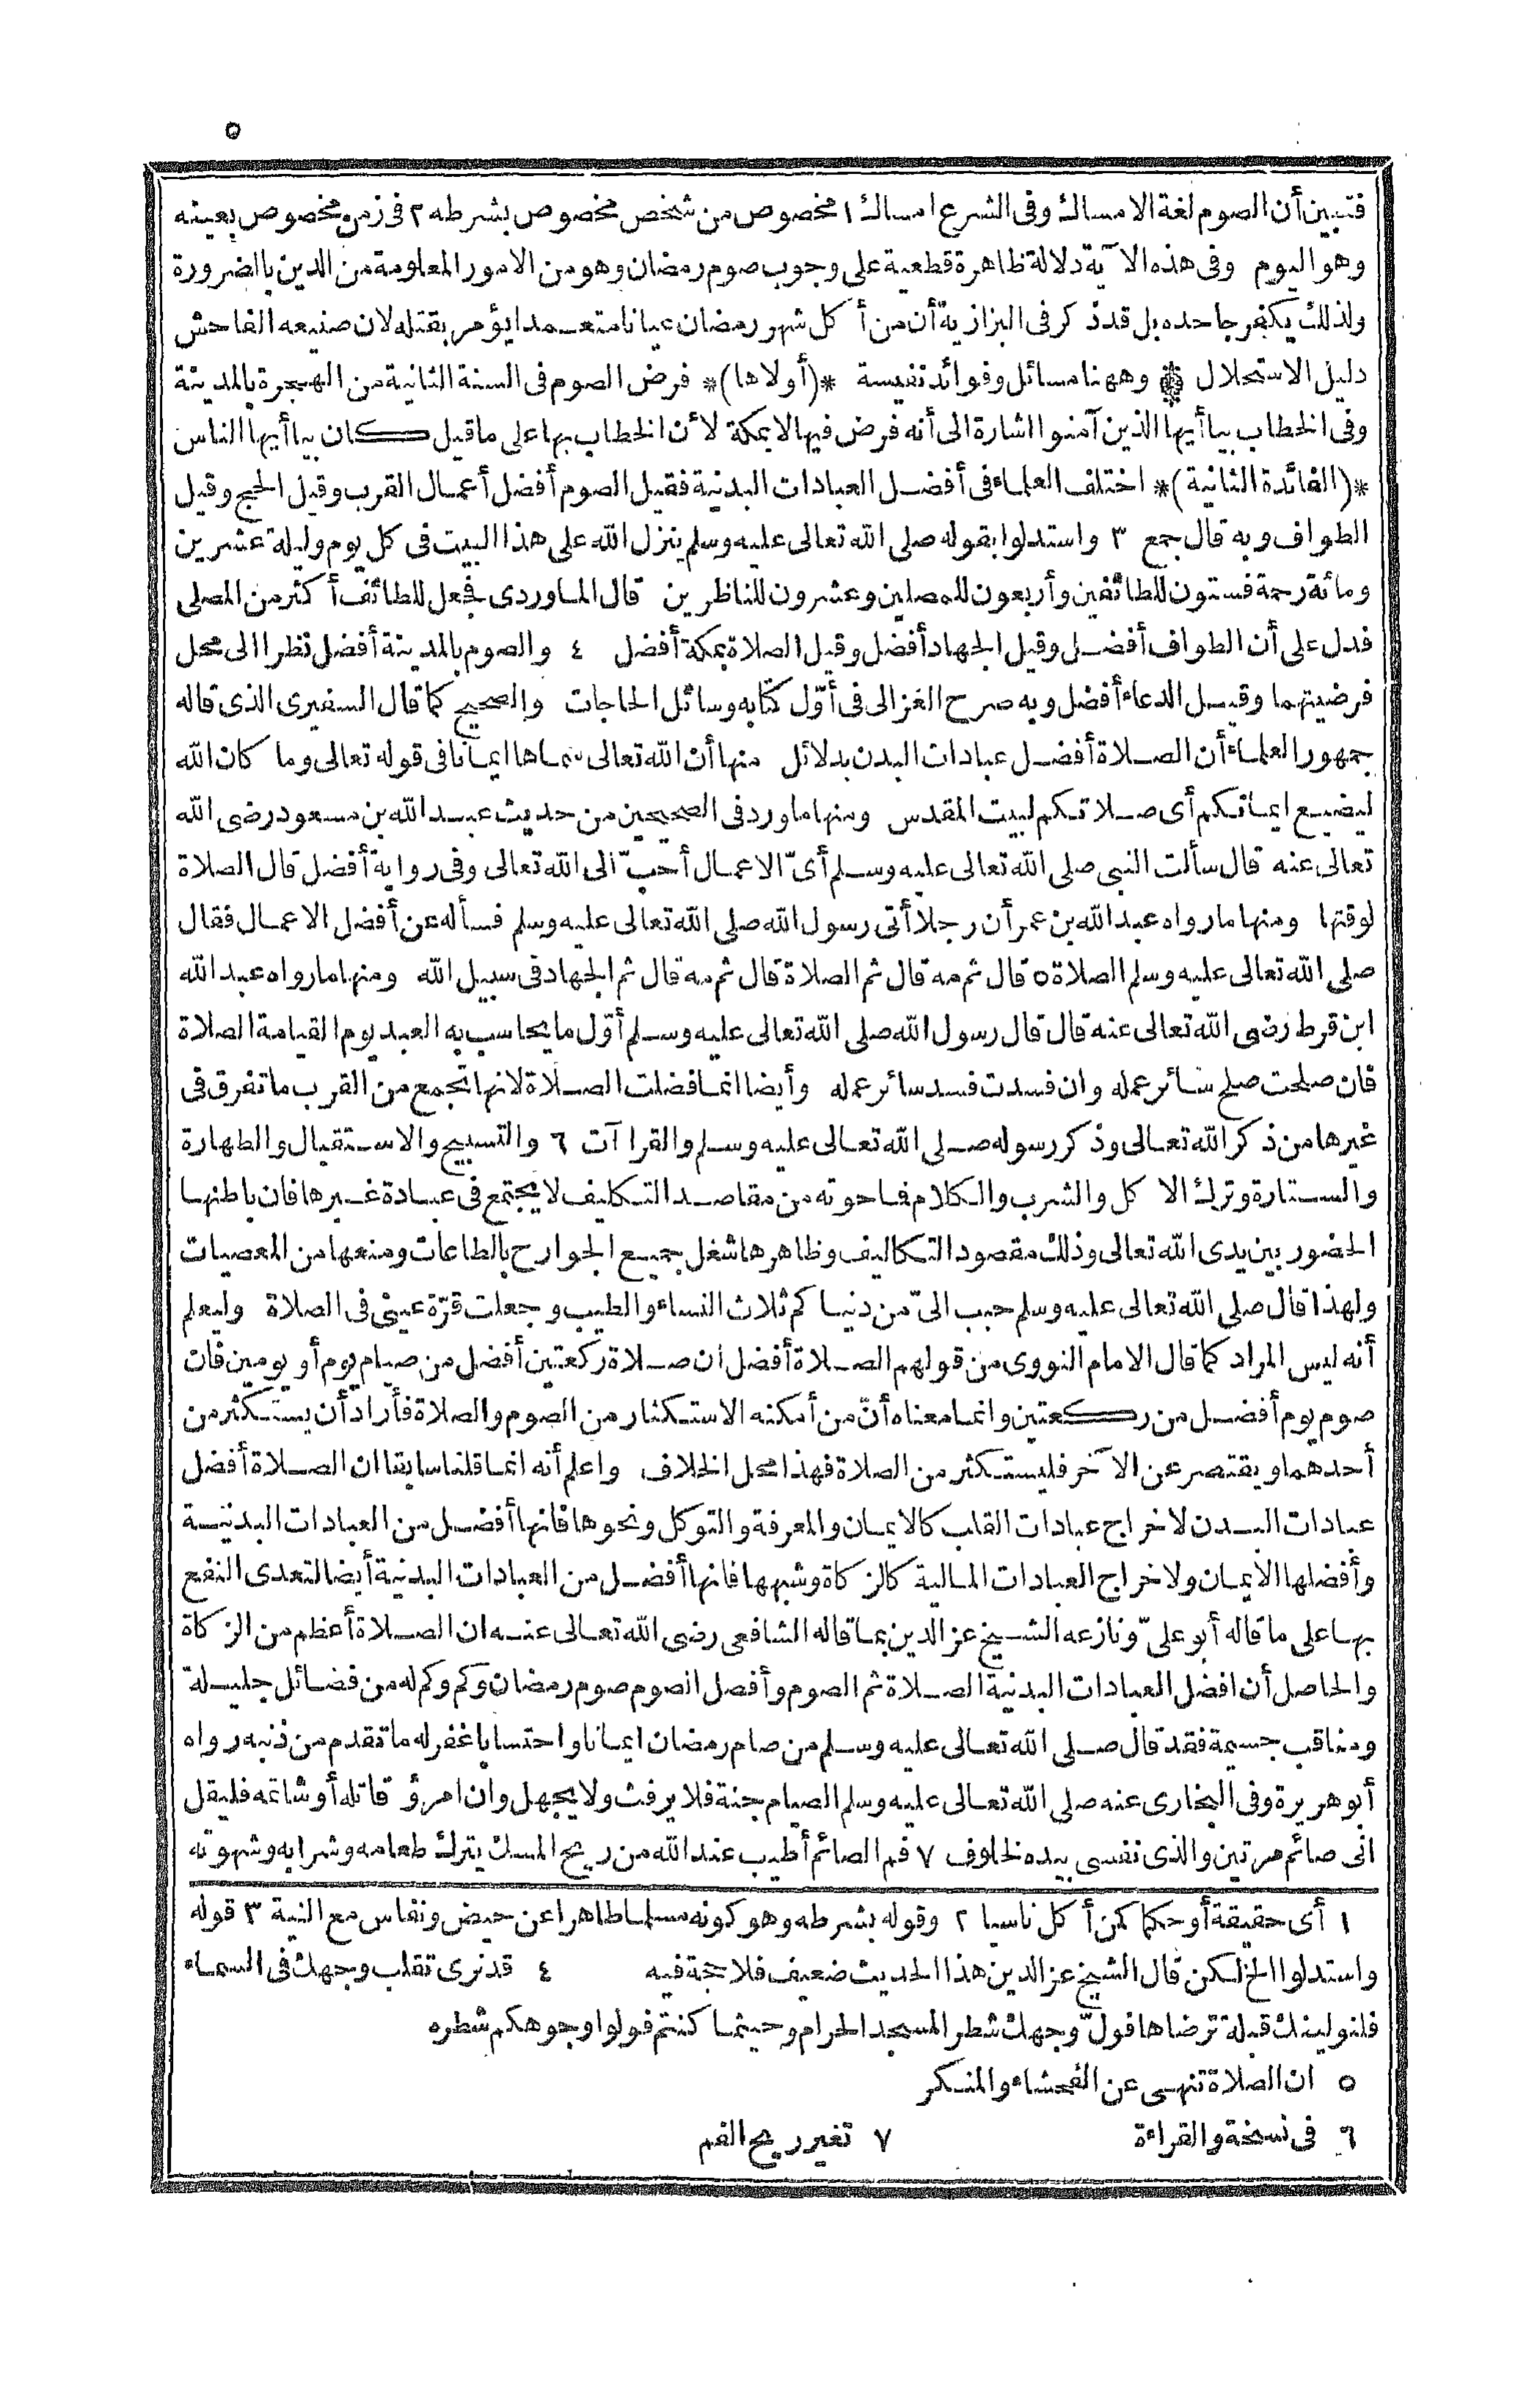 ٥
فتبين أن الصوم لغة الامساك وفى الشرع امساك ١ مخصوص من شخص مخصوص بشرطه ٢ فى زمن مخصوص بعينه
وهو اليوم وفى هذه الآية دلالة ظاهرة قطعية على وجوب صوم رمضان وهو من الامور المعلومة من الدين بالضرورة
ولذلك يكفر جاحده بل قد ذكر فى البزازية أن من أكل شهر رمضان عيانا متعمدا يؤمر بقتله لان صنيعه الفاحش
دليل الاستحلال * وههنا مسائل وفوائد نفيسة *(أولاها)* فرض الصوم فى السنة الثانية من الهجرة بالمدينة
وفى الخطاب بيا أيها الذين آمنوا اشارة الى أنه فرض فيها لا بمكة لأن الخطاب بها على ما قيل كان بيا أيها الناس
*(الفائدة الثانية)* اختلف العلماء فى أفضل العبادات البدنية فقيل الصوم أفضل أعمال القرب وقيل الحج وقيل
الطواف وبه قال جمع ٣ واستدلوا بقوله صلى الله تعالى عليه وسلم ينزل الله على هذا البيت فى كل يوم وليلة عشرين
ومائة رحمة فستون للطائفين وأربعون للمصلين وعشرون للناظرين قال الماوردى فجعل للطائف أكثر من المصلى
فدل على أن الطواف أفضل وقيل الجهاد أفضل وقيل الصلاة بمكة أفضل ٤ والصوم بالمدينة أفضل نظرا الى محل
فرضيتهما وقيل الدعاء أفضل وبه صرح الغزالى فى أوّل كتابه وسائل الحاجات والصحيح كما قال السفيرى الذى قاله
جمهور العلماء أن الصلاة أفضل عبادات البدن بدلائل منها أن الله تعالى سماها ايمانا فى قوله تعالى وما كان الله
ليضيع ايمانكم أى صلاتكم لبيت المقدس ومنها ما ورد فى الصحيحين من حديث عبد الله بن مسعود رضى الله
تعالى عنه قال سألت النبى صلى الله تعالى عليه وسلم أىّ الاعمال أحبّ الى الله تعالى وفى رواية أفضل قال الصلاة
لوقتها ومنها ما رواه عبد الله بن عمر أن رجلا أتى رسول الله صلى الله تعالى عليه وسلم فسأله عن أفضل الاعمال فقال
صلى الله تعالى عليه وسلم الصلاة ٥ قال ثم مه قال ثم الصلاة قال ثم مه قال ثم الجهاد فى سبيل الله ومنها ما رواه عبد الله
ابن قرط رضى الله تعالى عنه قال قال رسول الله صلى الله تعالى عليه وسلم أوّل ما يحاسب به العبد يوم القيامة الصلاة
فان صلحت صلح سائر عمله وان فسدت فسد سائر عمله وأيضا انما فضلت الصلاة لانها تجمع من القرب ما تفرق فى
غيرها من ذكر الله تعالى وذكر رسوله صلى الله تعالى عليه وسلم والقرا آت ٦ والتسبيح والاستقبال والطهارة
والستارة وترك الاكل والشرب والكلام فما حوته من مقاصد التكليف لا يجتمع فى عبادة غيرها فان باطنها
الحضور بين يدى الله تعالى وذلك مقصود التكاليف وظاهرها شغل جميع الجوارح بالطاعات ومنعها من المعصيات
ولهذا قال صلى الله تعالى عليه وسلم حبب الىّ من دنياكم ثلاث النساء والطيب وجعلت قرّة عينى فى الصلاة وليعلم
أنه ليس المراد كما قال الامام النووى من قولهم الصلاة أفضل ان صلاة ركعتين أفضل من صيام يوم أو يومين فان
صوم يوم أفضل من ركعتين وانما معناه أنّ من أمكنه الاستكثار من الصوم والصلاة فأراد أن يستكثر من
أحدهما ويقتصر عن الآخر فليستكثر من الصلاة فهذا محل الخلاف واعلم أنه انما قلنا سابقا ان الصلاة أفضل
عبادات البدن لاخراج عبادات القلب كالايمان والمعرفة والتوكل ونحوها فانها أفضل من العبادات البدنية
وأفضلها الايمان ولاخراج العبادات المالية كالزكاة وشبهها فانها أفضل من العبادات البدنية أيضا لتعدى النفع
بها على ما قاله أبو علىّ ونازعه الشيخ عز الدين بما قاله الشافعى رضى الله تعالى عنه ان الصلاة أعظم من الزكاة
والحاصل أن افضل العبادات البدنية الصلاة ثم الصوم وأفصل الصوم صوم رمضان وكم وكم له من فضائل جليلة
ومناقب جسيمة فقد قال صلى الله تعالى عليه وسلم من صام رمضان ايمانا واحتسابا غفر له ما تقدم من ذنبه رواه
أبو هريرة وفى البخارى عنه صلى الله تعالى عليه وسلم الصيام جنة فلا يرفث ولا يجهل وان امرؤ قاتله أو شاتمه فليقل
انى صائم مرتين والذى نفسى بيده لخلوف ٧ فم الصائم أطيب عند الله من ريح المسك يترك طعامه وشرابه وشهوته
١ أى حقيقة أو حكما كمن أكل ناسيا ٢ وقوله بشرطه وهو كونه مسلما طاهرا عن حيض ونفاس مع النية ٣ قوله
واستدلوا الخ لكن قال الشيخ عز الدين هذا الحديث ضعيف فلا حجة فيه ٤ قد نرى تقلب وجهك فى السماء
فلنولينك قبلة ترضاها فولّ وجهك شطر المسجد الحرام وحيثما كنتم فولوا وجوهكم شطره
٥ ان الصلاة تنهى عن الفحشاء والمنكر
٦ فى نسخة والقراءة ٧ تغير ريح الفم